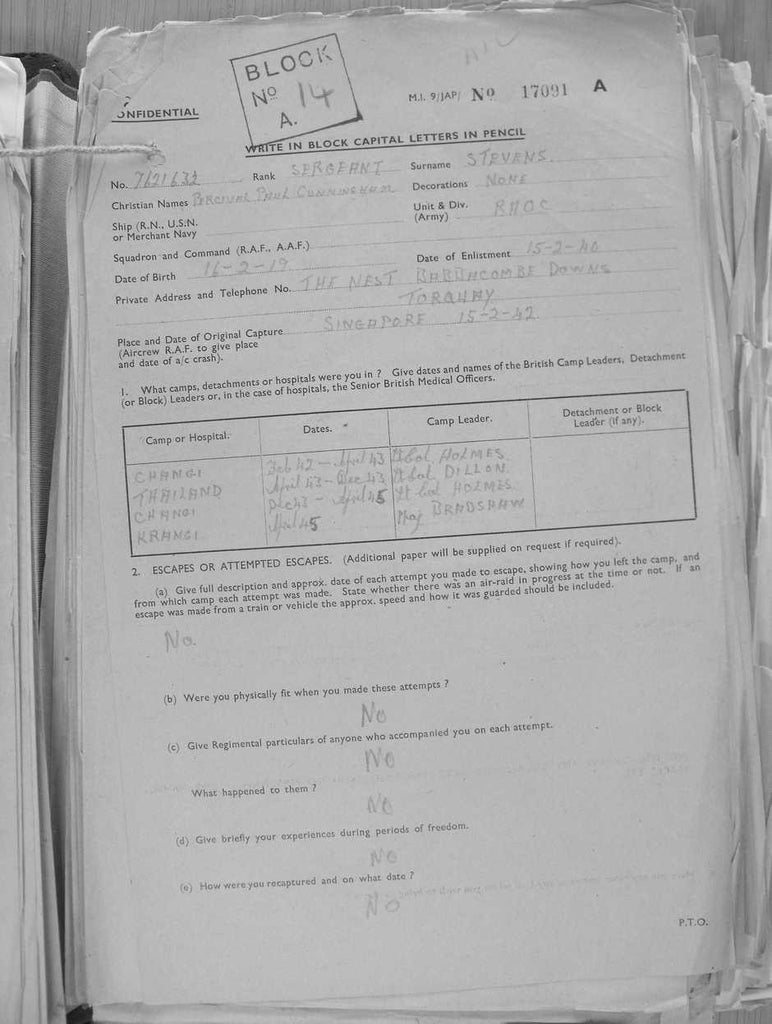 BLOCK
No 14
A.
ONFIDENTIAL
M.I. 9/JAP/ No 17091 A
WRITE IN BLOCK CAPITAL LETTERS IN PENCIL
No. 7621632 Rank SERGEANT Surname STEVENS.
Christian Names PERCIVAL PAUL CUNNINGHAM Decorations NONE
Ship (R.N., U.S.N. or Merchant Navy Unit & Div. (Army) RAOC
Squadron and Command (R.A.F., A.A.F.)
Date of Birth 16-2-19 Date of Enlistment 15-2-40
Private Address and Telephone No. THE NEST BABBACOMBE DOWNS
TORQUAY
Place and Date of Original Capture SINGAPORE 15-2-42.
(Aircrew R.A.F. to give place
and date of a/c crash).
1. What camps, detachments or hospitals were you in ? Give dates and names of the British Camp Leaders, Detachment
(or Block) Leaders or, in the case of hospitals, the Senior British Medical Officers.
Camp or Hospital. Dates. Camp Leader. Detachment or Block Leader (if any).
CHANGI Feb 42 - April 43 Lt Col HOLMES
THAILAND April 43 - Dec 43 Lt Col DILLON
CHANGI Dec 43 - April 45 Lt Col HOLMES
KRANGI April 45 Maj BRADSHAW
2. ESCAPES OR ATTEMPTED ESCAPES. (Additional paper will be supplied on request if required).
(a) Give full description and approx. date of each attempt you made to escape, showing how you left the camp, and
from which camp each attempt was made. State whether there was an air-raid in progress at the time or not. If an
escape was made from a train or vehicle the approx. speed and how it was guarded should be included.
No.
(b) Were you physically fit when you made these attempts ?
No
(c) Give Regimental particulars of anyone who accompanied you on each attempt.
No
What happened to them ?
No
(d) Give briefly your experiences during periods of freedom.
No
(e) How were you recaptured and on what date ?
No
P.T.O.